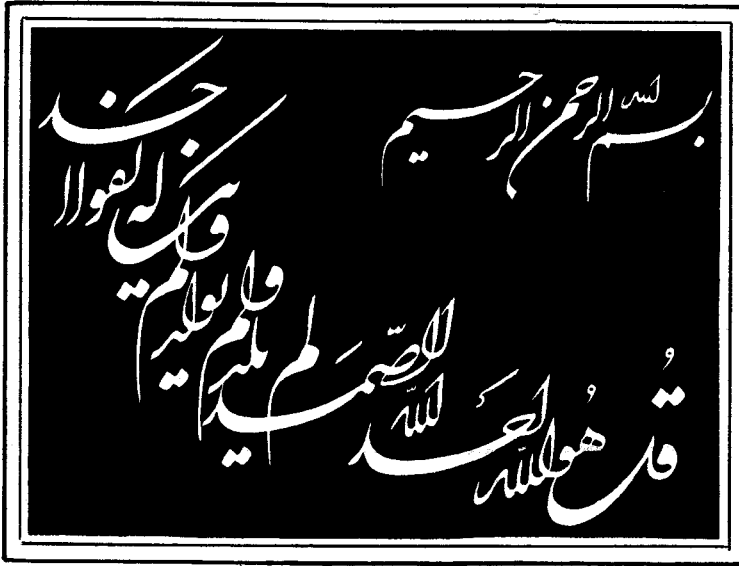 بسم الله الرحمن الرحیم
قُل هُوالله احد الله الصّمد لم یلد ولم یولد ولم یکن له کفوا احد